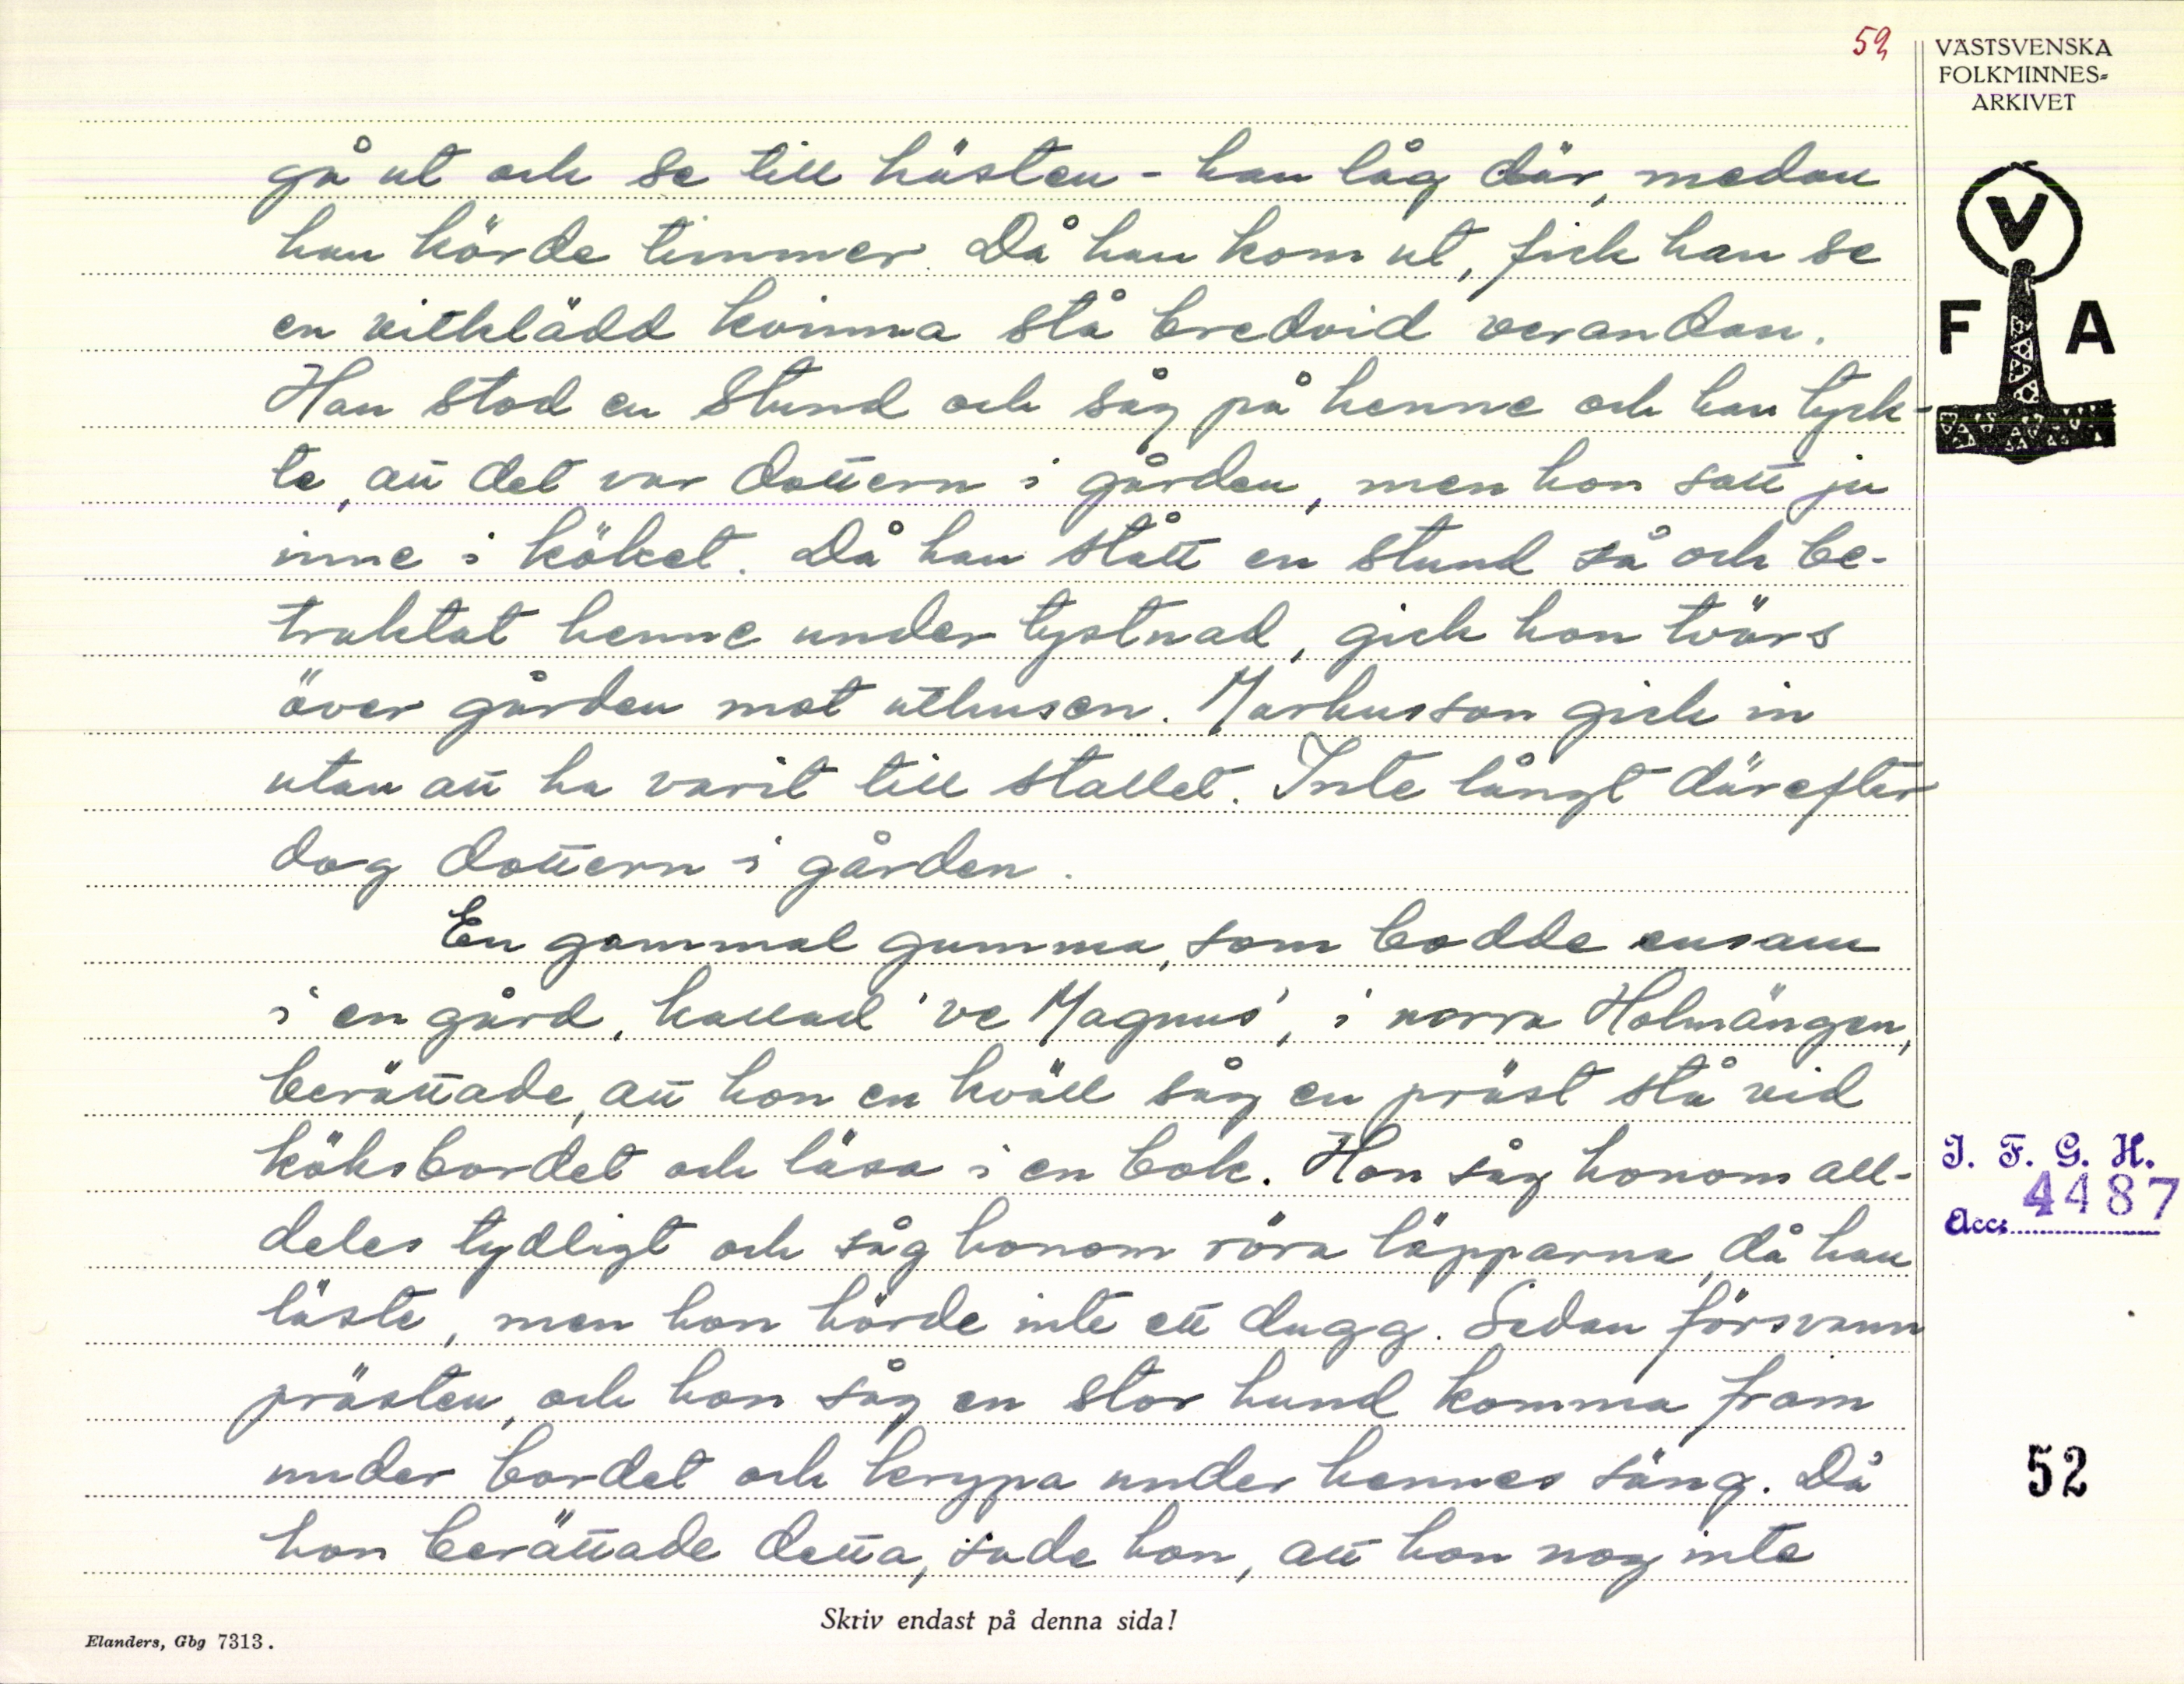 59
VÄSTSVENSKA
FOLKMINNES-
ARKIVET
V
F A
gå ut och se till hästen - han låg där, medan
han körde timmer. Då han kom ut, fick han se
en vitklädd kvinna stå bredvid verandan.
Han stod en stund och såg på henne och han tyck-
te, att det var dottern i gården, men hon satt ju
inne i köket. Då han stått en stund så och be-
traktat henne under tystnad, gick hon tvärs
över gården mot uthusen. Markusson gick in
utan att ha varit till stallet. Inte långt därefter
dog dottern i gården.
En gammal gumma, som bodde ensam
i en gård, kallad 've Magnus', i norra Holmängen,
berättade, att hon en kväll såg en präst stå vid
köksbordet och läsa i en bok. Hon såg honom all-
deles tydligt och såg honom röra läpparna, då han
läste, men hon hörde inte ett dugg. Sedan försvann
prästen, och hon såg en stor hund komma fram
under bordet och krypa under hennes säng. Då
hon berättade detta, sade hon, att hon nog inte
I. F. G. H.
Acc. 4487
52
Skriv endast på denna sida!
Elanders, Gbg 7313.